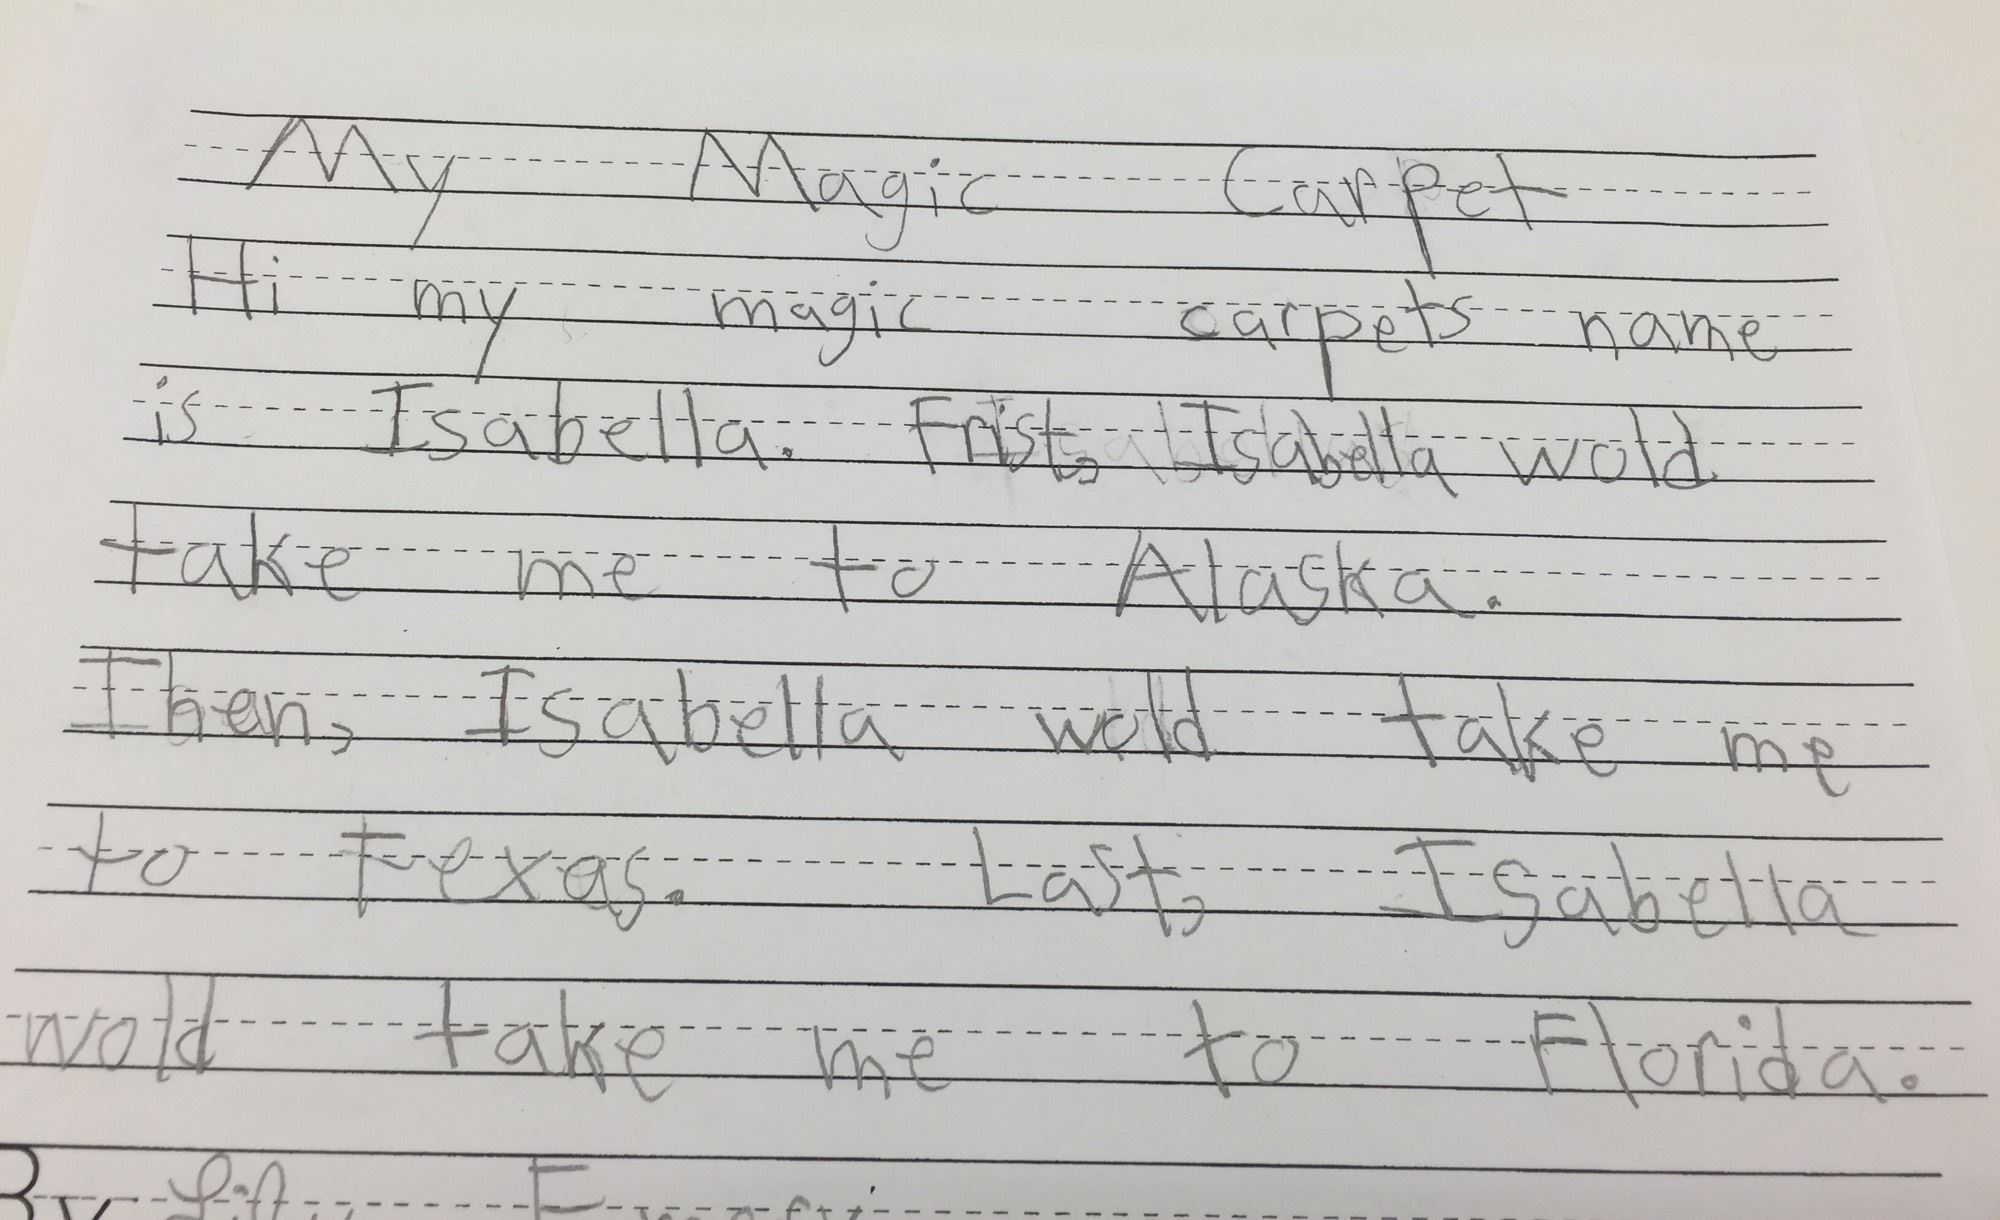 My Magic Carpet
Hi my magic carpets name
is Isabella. Frist, Isabella wold
take me to Alaska.
Then, Isabella wold take me
to Texas. Last, Isabella
wold take me to Florida.
By